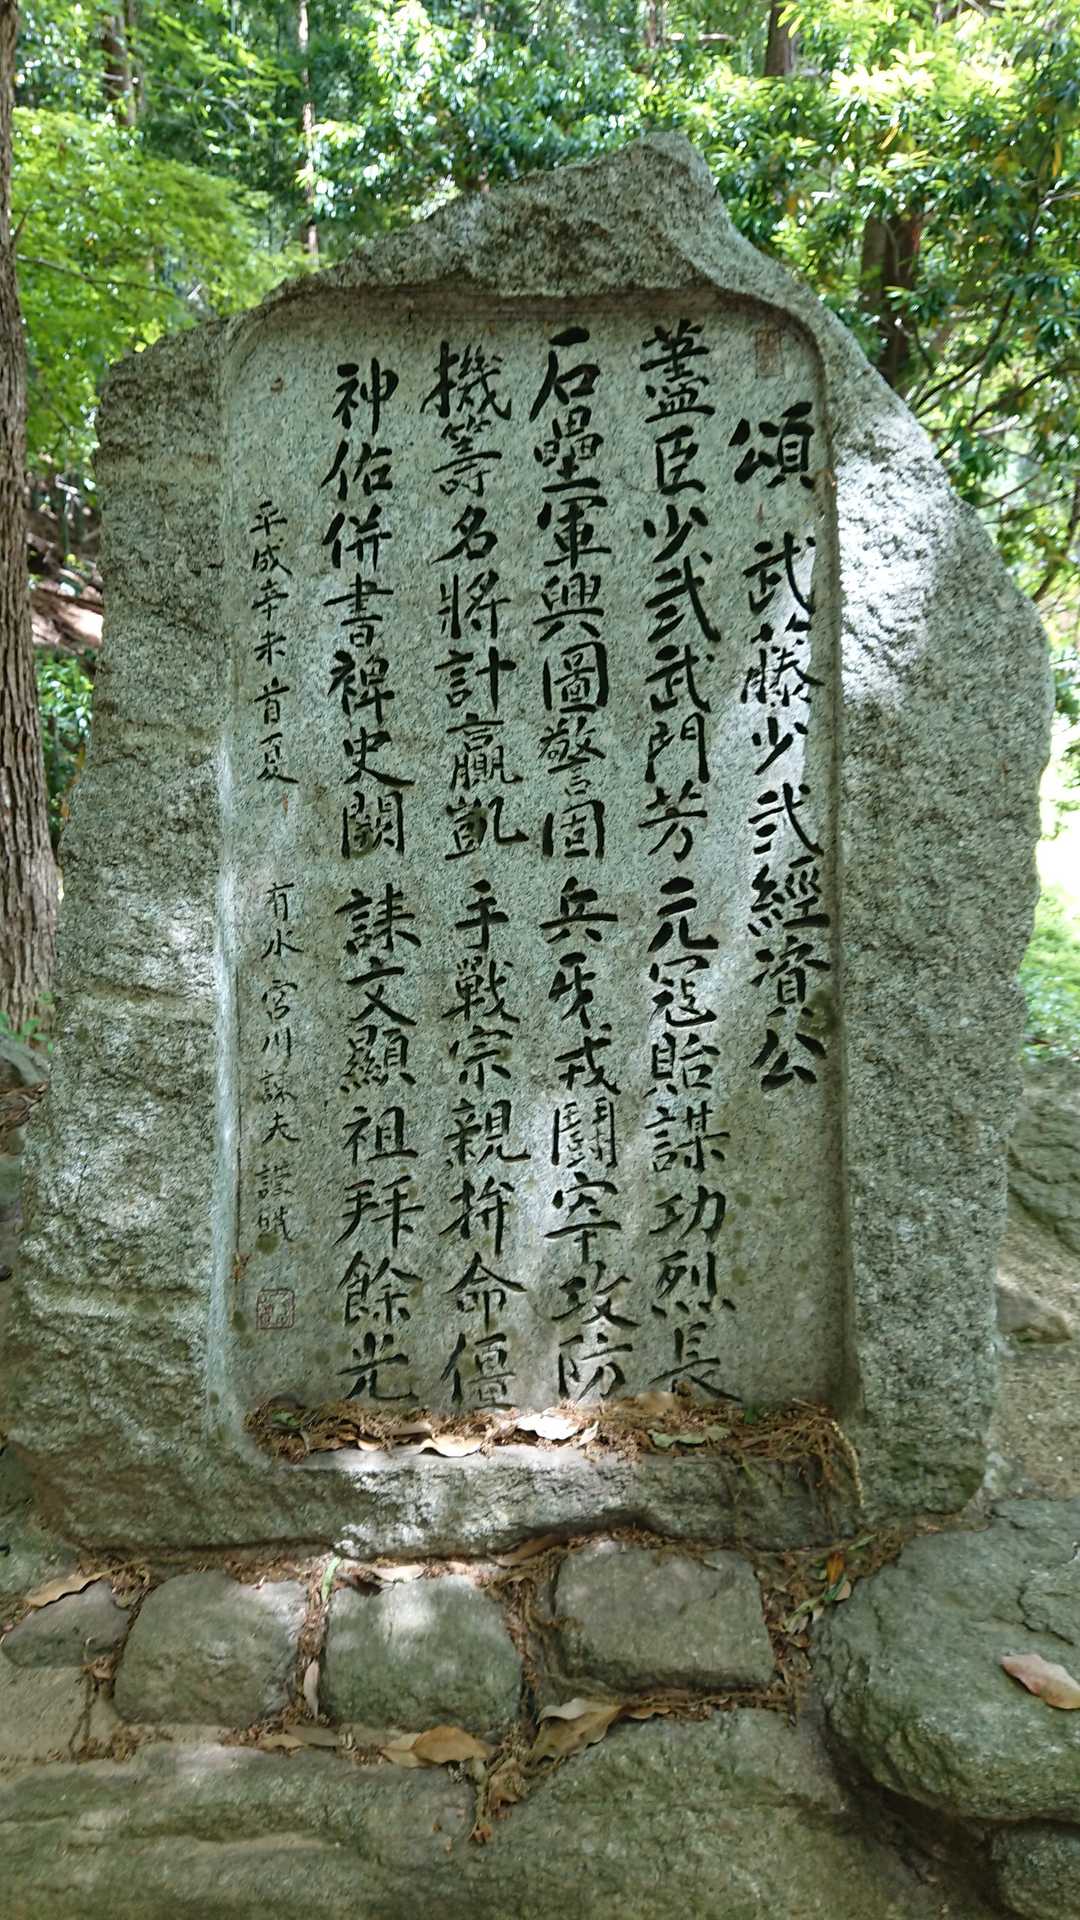 頌 武藤少弐經資公
藎臣少弐武門芳 元寇貽謀功烈長
石壘軍興圖警固 兵牙戎鬪牢攻防
機籌名將計贏凱 手戰宗親拚命僵
神佑併書裨史闕 誄文顯祖拜餘光
平成辛未首夏 有水 宮川 夫 謹識